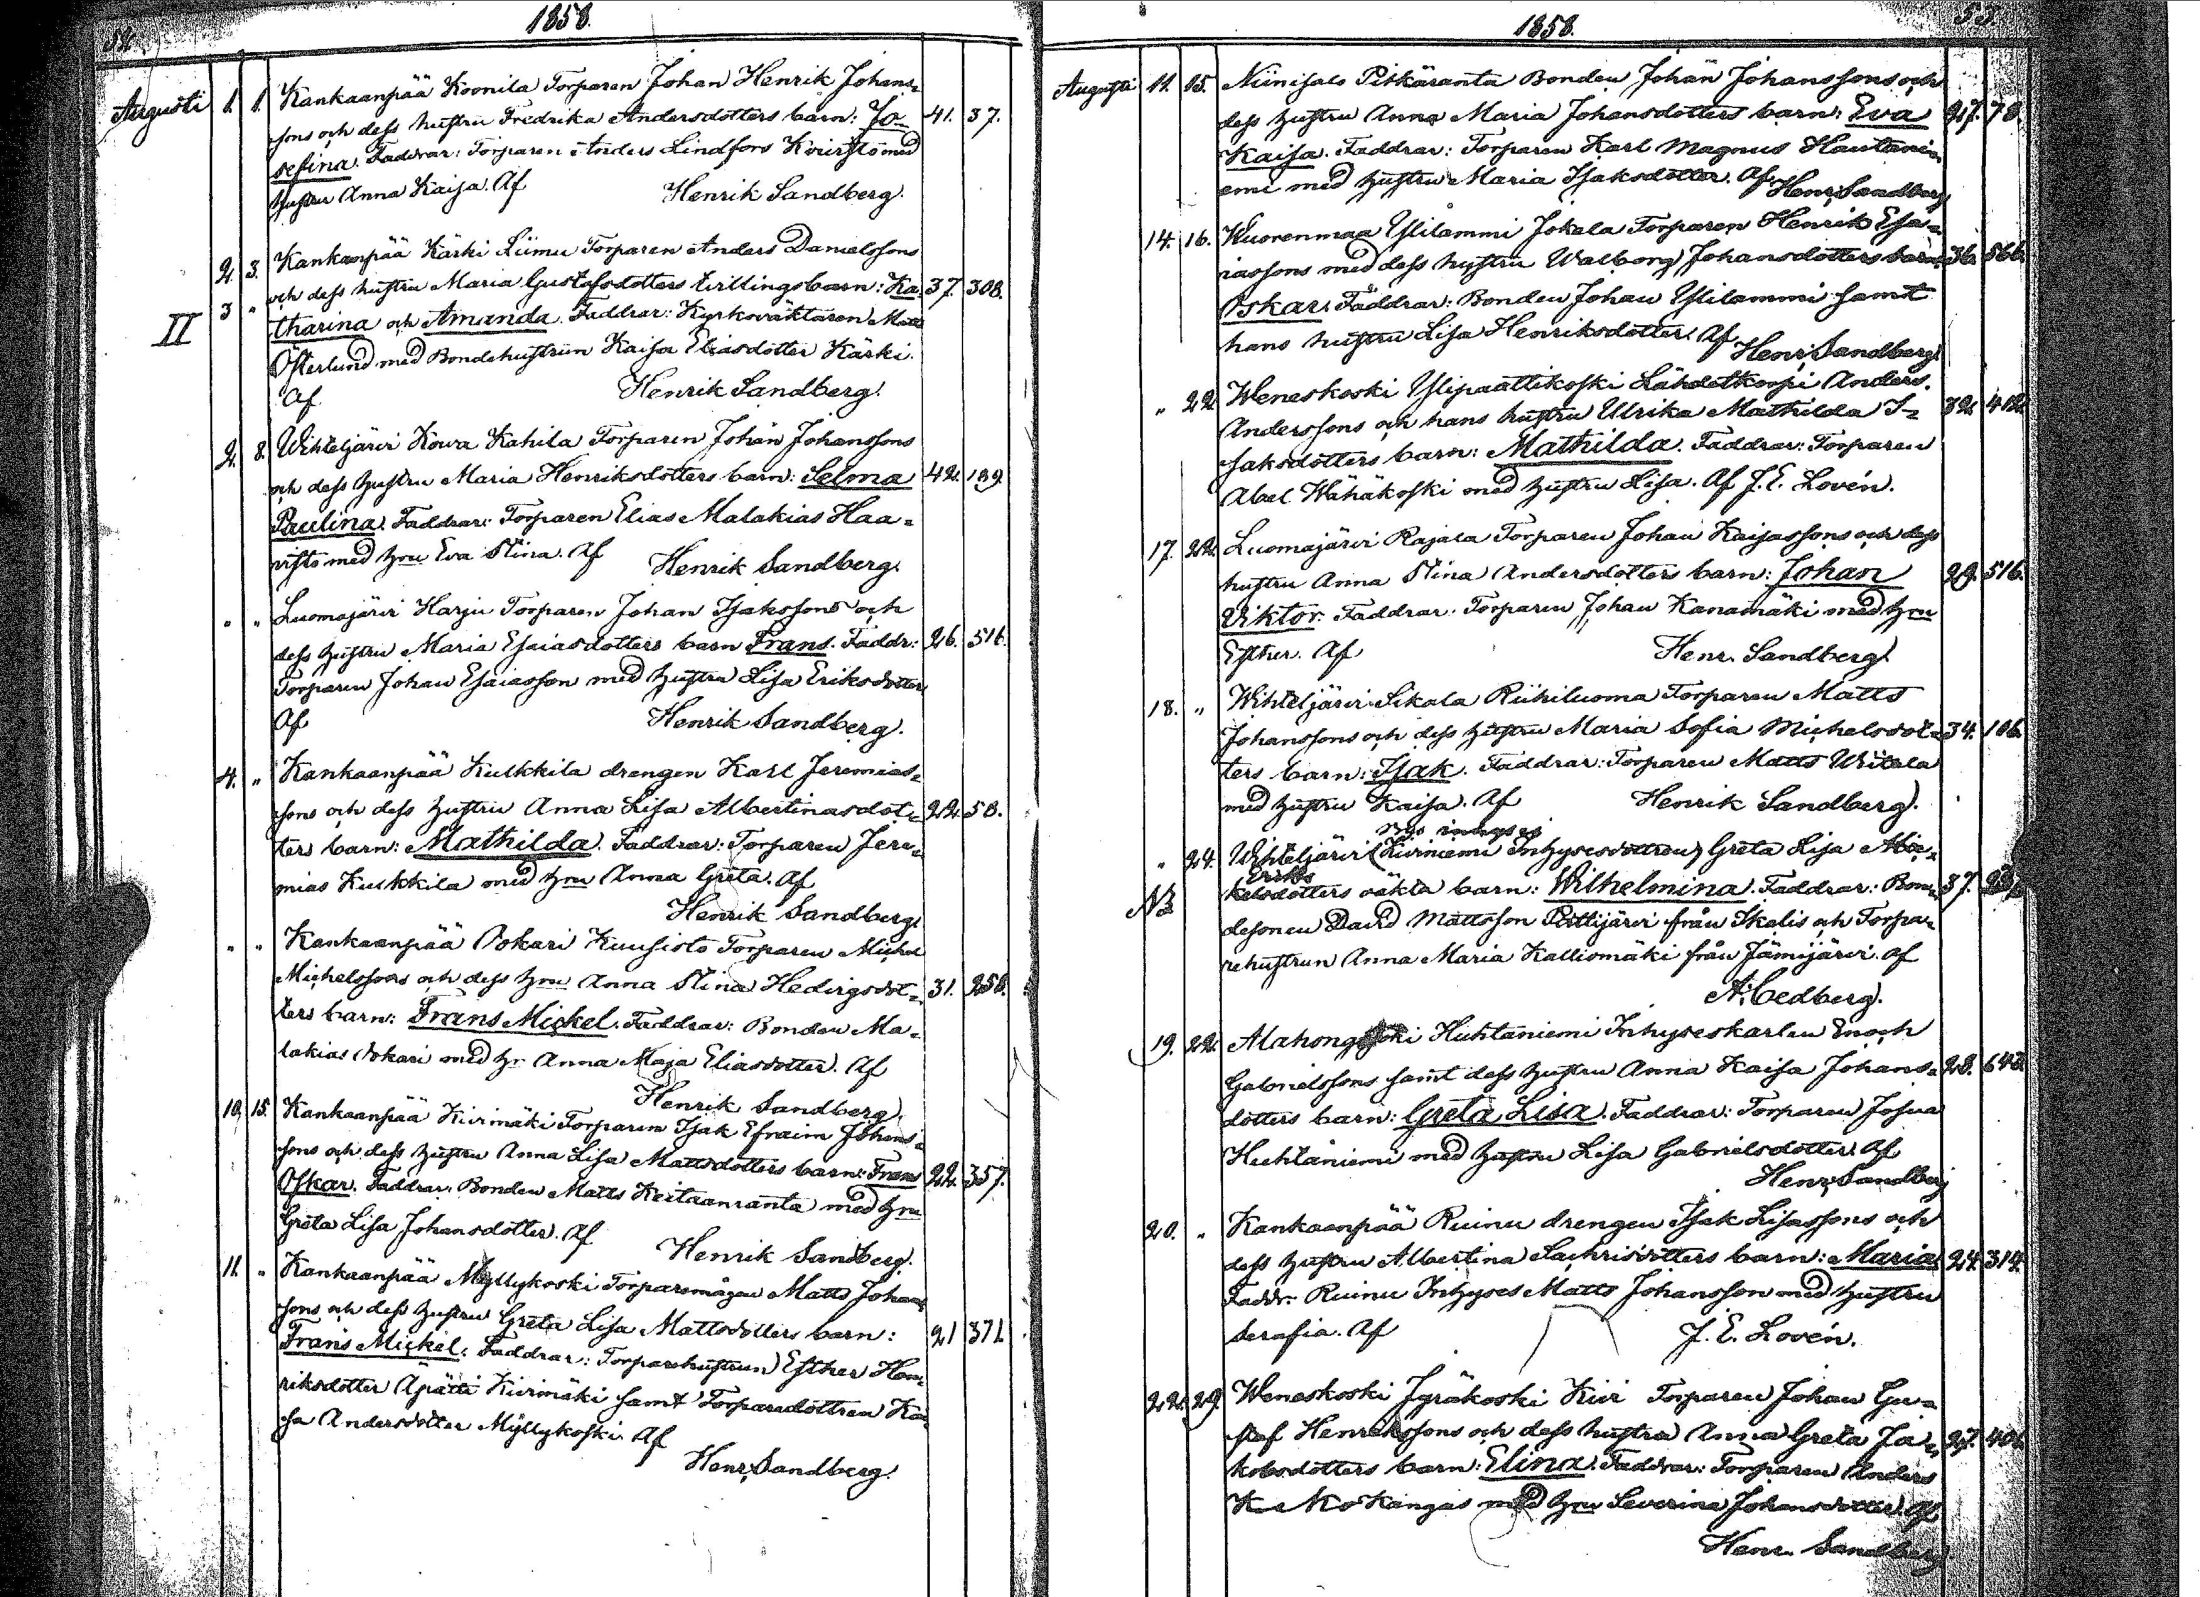 54.
1858.
Augusti 1. 1. Kankaanpää Koonila Torparen Johan Henrik Johans-
sons och dess hustru Fredrika Andersdotters barn: Jo- 41. 37.
sefina. Faddrar: Torparen Anders Lindfors med
hustru Anna Kaisa. Af Henrik Sandberg.
2. 3. Kankaanpää Kärki Liimu Torparen Anders Danielssons
3 " och dess hustru Maria Gustafsdotters tvillingsbarn: Ka- 37. 308.
II tharina och Amanda. Faddrar: Kyrkoväktaren Matts
Österlund med Bondehustrun Kaisa Eliasdotter Kärki.
Af Henrik Sandberg.
2. 8. Wihteljärvi Kowa Kahila Torparen Johan Johanssons
och dess hustru Maria Henriksdotters barn: Selma 42. 139.
Paulina. Faddrar: Torparen Elias Malakias Haa-
visto med hru Eva Stina. Af Henrik Sandberg.
" " Luomajärvi Harju Torparen Johan Isakssons och
dess hustru Maria Esaiasdotters barn Frans. Faddr: 26. 516.
Torparen Johan Esaiasson med hustru Lisa Eriksdotter
Af Henrik Sandberg.
4. " Kankaanpää Kulkkila drengen Karl Jeremias-
sons och dess hustru Anna Lisa Albertinasdot- 22. 58.
ters barn: Mathilda. Faddrar: Torparen Jere-
mias Kulkkila med hru Anna Greta. Af
Henrik Sandberg.
" " Kankaanpää Wokari Kuusisto Torparen Michel
Michelssons och dess hru Anna Stina Hedvigsdot- 31. 258.
ters barn: Frans Mickel. Faddrar: Bonden Ma-
lakias Wokari med hr. Anna Maja Eliasdotter. Af
Henrik Sandberg.
10. 15. Kankaanpää Kivimäki Torparen Isak Efraim Johans-
sons och dess hustru Anna Lisa Mattsdotters barn: Frans 22. 357.
Oskar. Faddrar: Bonden Matts Keitaanranta med hru
Greta Lisa Johansdotter. Af
Henrik Sandberg.
11. " Kankaanpää Myllykoski Torparemågen Matts Johans
sons och dess hustru Greta Lisa Mattsdotters barn: 21 371.
Frans Mickel. Faddrar: Torparehustrun Esther Hen-
riksdotter Kivimäki samt Torparedottren Kai-
sa Andersdotter Myllykoski. Af
Henr. Sandberg.
55.
1858.
Augusti 11. 15. Niinisalo Pitkäranta Bonden Johan Johanssons och
dess hustru Anna Maria Johansdotters barn: Eva 27. 78.
Kaisa. Faddrar: Torparen Karl Magnus Hautani-
emi med hustru Maria Isaksdotter. Af Henr. Sandberg
14. 16. Kuorenmaa Ylilammi Jokela Torparen Henrik Esa-
iassons med dess hustru Walborg Johansdotters barn: 36. 566.
Oskar. Faddrar: Bonden Johan Ylilammi samt
hans hustru Lisa Henriksdotter. Af
Henr. Sandberg.
" 22. Weneskoski Ylipaattikoski Lähdetkorpi Anders
Anderssons och hans hustru Ulrika Mathilda I- 32. 412.
saksdotters barn: Mathilda. Faddrar: Torparen
Abel Wähäkoski med hustru Lisa. Af J. E. Lovén.
17. 22. Luomajärvi Rajala Torparen Johan Kaisassons och dess
hustru Anna Stina Andersdotters barn: Johan 29. 516.
Viktor. Faddrar: Torparen Johan Kanamäki med hru
Esther. Af Henr. Sandberg.
18. " Wihteljärvi Sikala Riihiluoma Torparen Matts
Johanssons och dess hustru Maria Sofia Michelsdot- 34. 106.
ters barn: Isak. Faddrar: Torparen Matts Witala
med hustru Kaisa. Af Henrik Sandberg.
" 24. Wihteljärvi (Kiviniemi Inhysesdottren) Greta Lisa
Eriks
NB dotters oäkta barn: Wilhelmina. Faddrar: Bon- 37.
desonen David Mattsson Pittijärvi från Ikalis och Torpa-
rehustrun Anna Maria Kalliomäki från Jämijärvi. Af
A. Cedberg.
19. 22. Huhtaniemi Inhyseskarlen Enoch
Gabrielssons samt dess hustru Anna Kaisa Johans- 28. 643.
dotters barn: Greta Lisa. Faddrar: Torparen Josua
Huhtaniemi med hustru Lisa Gabrielsdotter. Af
Henr. Sandberg
20. " Kankaanpää Ruinu drengen Isak Lisassons och
dess hustru Albertina Sachrisdotters barn: Maria 24. 314.
Faddr: Ruinu Inhyses Matts Johansson med hustru
Serafia. Af J. E. Lovén.
22. 29. Weneskoski Jyräkoski Kivi Torparen Johan Gu-
staf Henrikssons och dess hustru Anna Greta Ja- 27. 401.
kobsdotters barn: Elina. Faddrar: Torparen Anders
kangas med hru Severina Johansdotter. Af
Henr. Sandberg